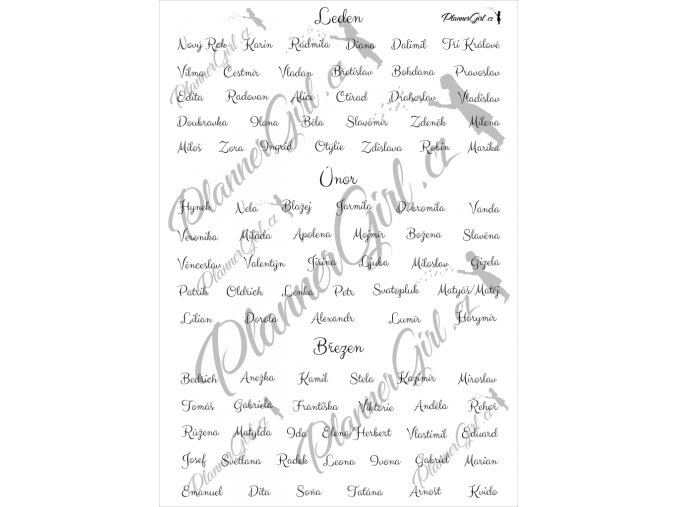 Leden
PlannerGirl.cz
Nový Rok Karin Radmila Diana Dalimil Tři Králové
Vilma Čestmír Vladan Břetislav Bohdana Pravoslav
Edita Radovan Alice Ctirad Drahoslav Vladislav
Doubravka Ilona Běla Slavomír Zdeněk Milena
Miloš Zora Ingrid Otýlie Zdislava Robin Marika
Únor
Hynek Nela Blažej Jarmila Dobromila Vanda
Veronika Milada Apolena Mojmír Božena Slavěna
Věnceslav Valentýn Jiřina Ljuba Miloslav Gizela
Patrik Oldřich Lenka Petr Svatopluk Matyáš/Matěj
Lilian Dorota Alexandr Lumír Horymír
Březen
Bedřich Anežka Kamil Stela Kazimír Miroslav
Tomáš Gabriela Františka Viktorie Anděla Řehoř
Růžena Matylda Ida Elena/Herbert Vlastimil Eduard
Josef Světlana Radek Leona Ivona Gabriel Marian
Emanuel Dita Soňa Taťána Arnošt Kvido
PlannerGirl.cz
PlannerGirl.cz
PlannerGirl.cz
PlannerGirl.cz
PlannerGirl.cz
PlannerGirl.cz
PlannerGirl.cz